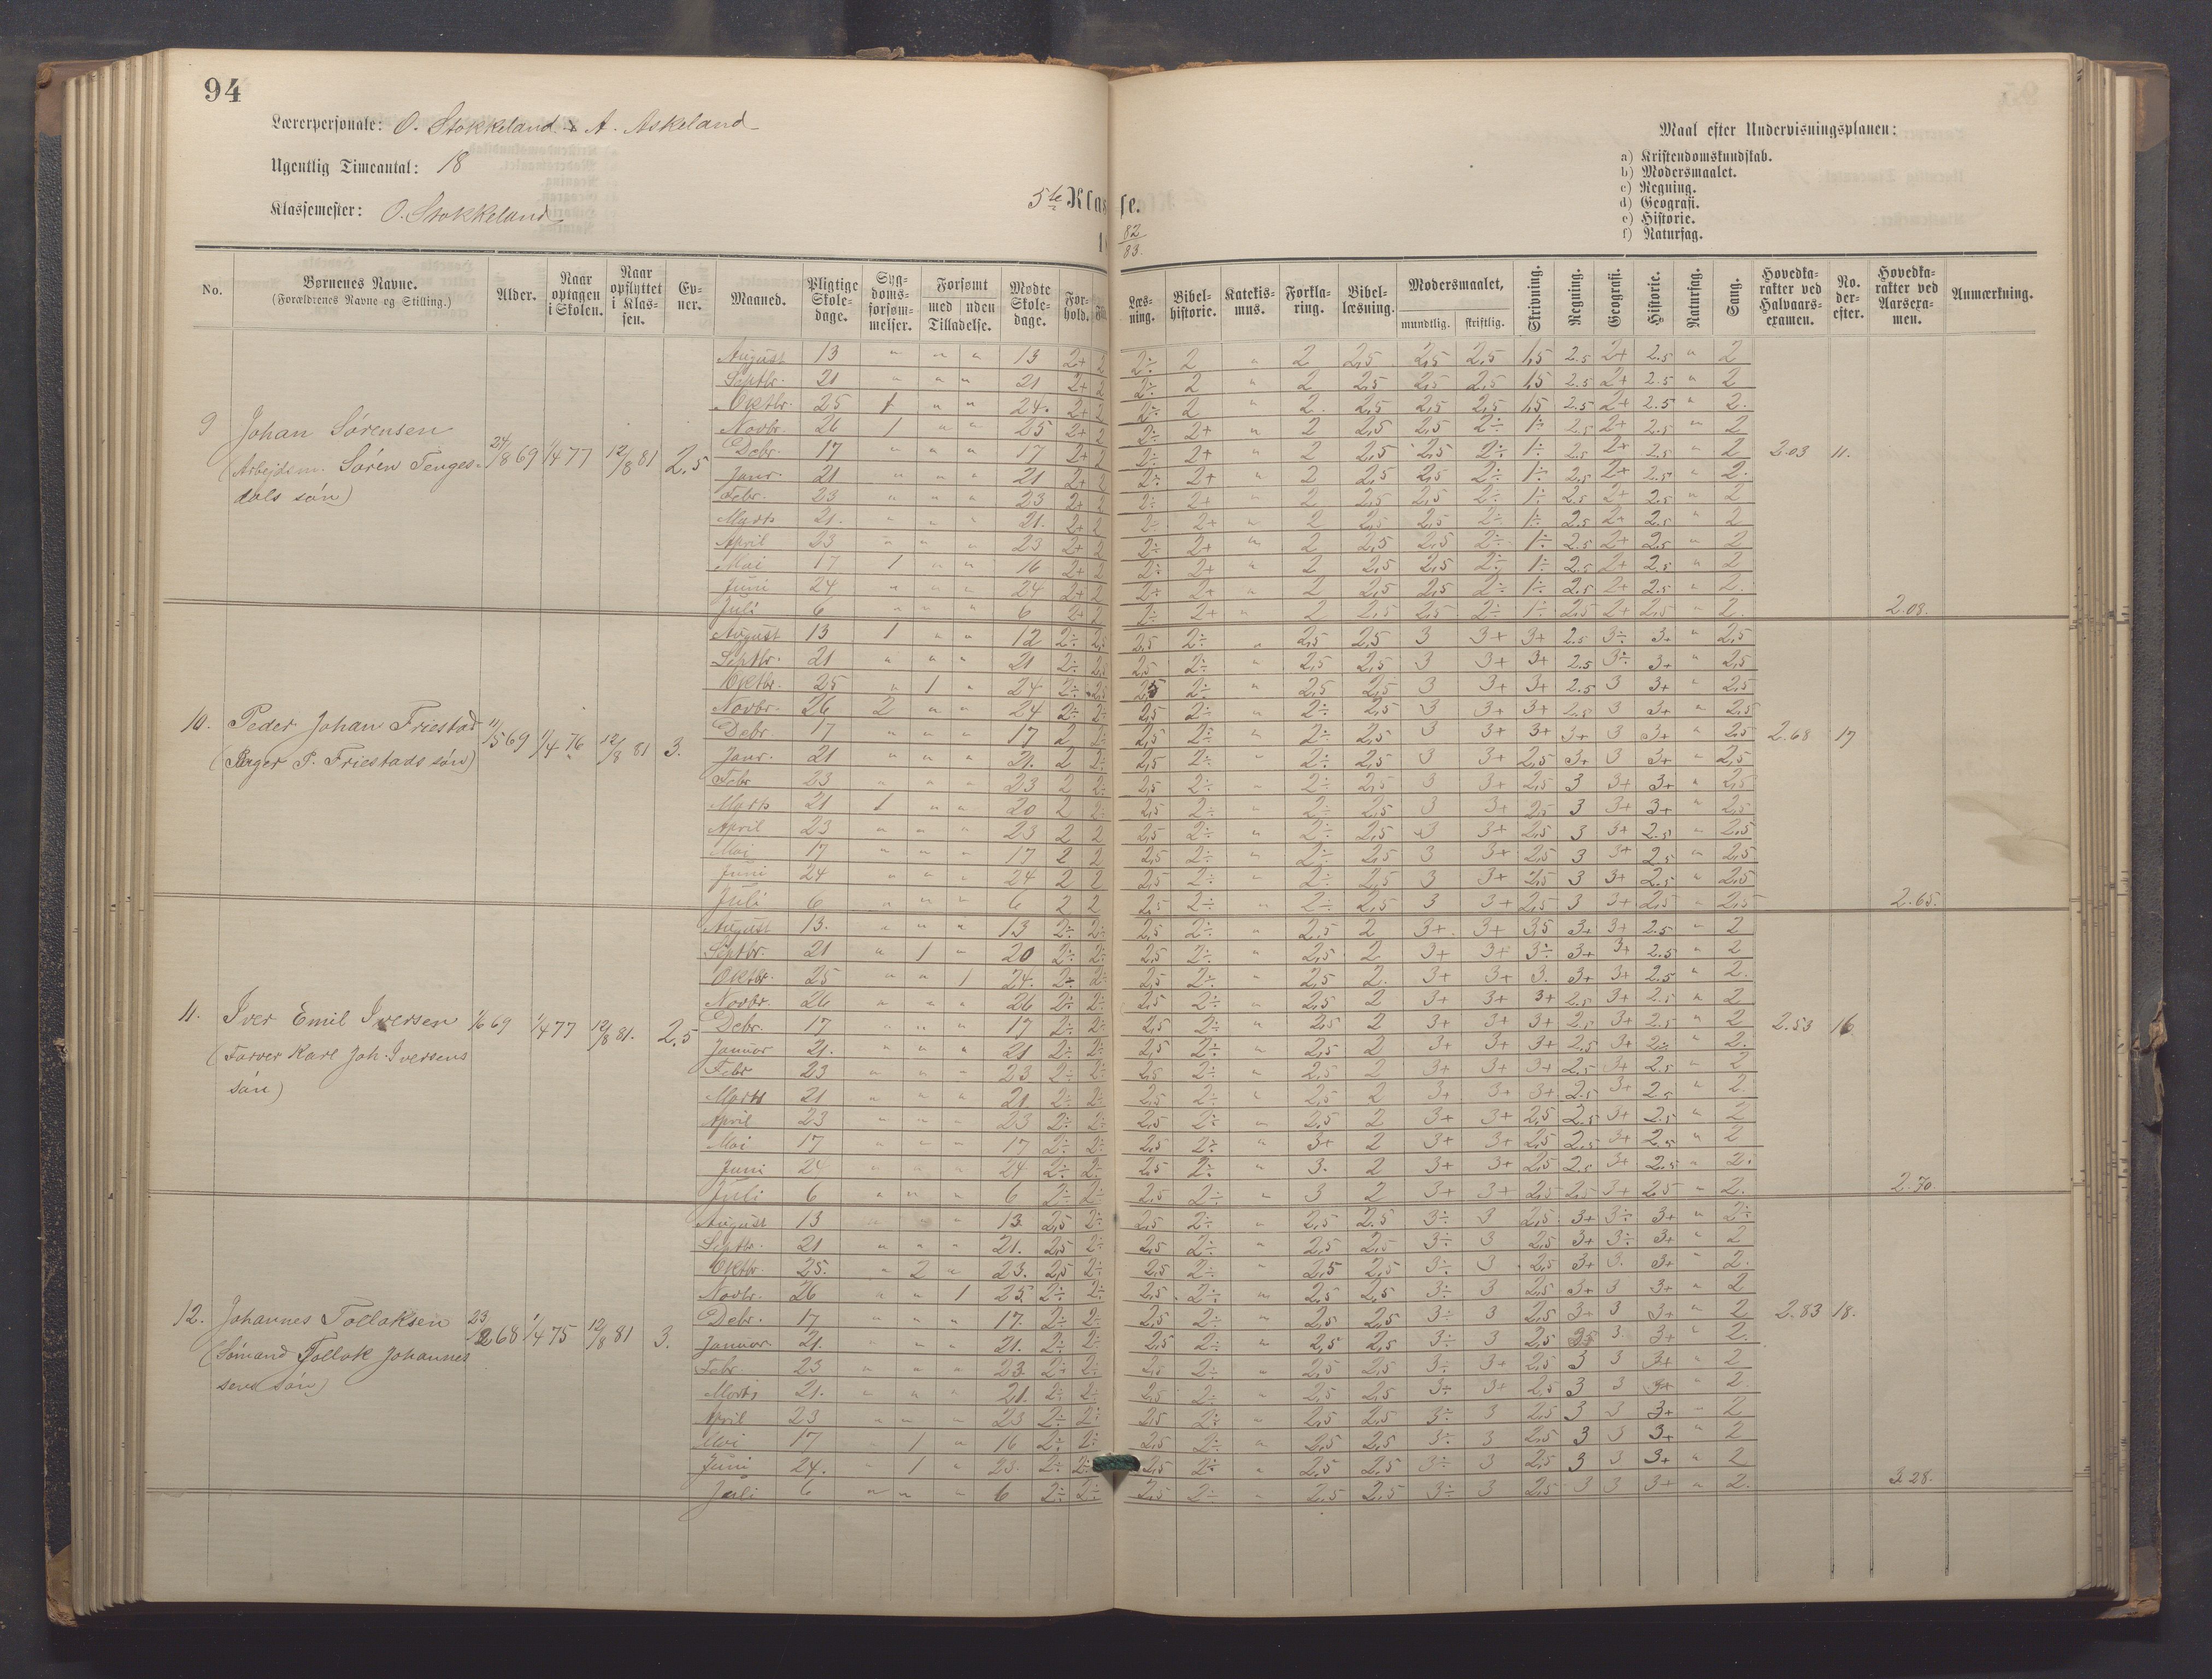 94
Lærerpersonale: O. Stokkeland & A. Askeland
Ugentlig Timeantal: 18
Klassemester: O. Stokkeland
5te Klasse.
18 82/83.
Maal efter Undervisningsplanen:
a) Kristendomskundskab.
b) Modersmaalet.
c) Regning.
d) Geografi.
e) Historie.
f) Naturfag.
No. Børnenes Navne. (Forældrenes Navne og Stilling.) Alder. Naar optagen i Skolen. Naar opflyttet i Klassen. Evner. Maaned. Pligtige Skoledage. Sygdomsforsømmelser. Forsømt med uden Tilladelse. Mødte Skoledage. Forhold. Læsning. Bibelhistorie. Katekismus. Forklaring. Bibellæsning. Modersmaalet, mundtlig. skriftlig. Skrivning. Regning. Geografi. Historie. Naturfag. Sang. Hovedkarakter ved Halvaarsexamen. No. derefter. Hovedkarakter ved Aarsexamen. Anmærkning.
August 13 " " " 13 2+ 2 2÷ 2 " 2 2,5 2,5 2,5 1,5 2.5 2+ 2.5 " 2
Septbr. 21 " " " 21 2+ 2 2÷ 2 " 2 2,5 2,5 2,5 1,5 2.5 2+ 2.5 " 2
Oktbr. 25 1 " " 24. 2+ 2 2÷ 2 " 2. 2,5 2,5 2,5 1,5 2.5 2+ 2.5 " 2.
Novbr. 26 1 " " 25 2+ 2 2÷ 2+ " 2 2,5 2,5 2÷ 1÷ 2.5 2+ 2.5 " 2
9 Johan Sørensen
(Arbejdsm. Søren Tengesdals søn) 24/8 69 1/4 77 12/8 81 2.5
Debr. 17 " " " 17 2+ 2 2÷ 2+ " 2 2,5 2,5 2÷ 1÷ 2.5 2+ 2.5 " 2 2.03 11.
Janr. 21 " " " 21 2+ 2 2÷ 2+ " 2 2,5 2,5 2÷ 1÷ 2.5 2+ 2.5 " 2.
Febr. 23 " " " 23 2+ 2 2÷ 2+ " 2 2,5 2,5 2÷ 1÷ 2.5 2+ 2.5 " 2
Marts 21. " " " 21. 2+ 2 2÷ 2+ " 2 2,5 2,5 2÷ 1÷ 2.5 2+ 2.5 " 2
April 23 " " " 23 2+ 2 2÷ 2+ " 2 2,5 2,5 2÷ 1÷ 2.5 2+ 2.5 " 2
Mai 17 1 " " 16 2+ 2 2÷ 2+ " 2 2,5 2,5 2÷ 1÷ 2.5 2+ 2.5 " 2
Juni 24 " " " 24 2+ 2 2÷ 2+ " 2 2,5 2,5 2÷ 1÷ 2.5 2+ 2.5 " 2.
Juli 6 " " " 6 2+ 2 2÷ 2+ " 2 2,5 2,5 2÷ 1÷ 2,5 2+ 2,5 " 2. 2.08.
August 13 1 " " 12 2÷ 2,5 2,5 2÷ " 2,5 2,5 3 3+ 3+ 2.5 3÷ 3+ " 2,5
Septbr. 21 " " " 21 2÷ 2,5 2,5 2÷ " 2,5 2,5 3 3+ 3+ 2.5 3÷ 3+ " 2,5
Oktbr. 25 " 1 " 24 2÷ 2,5 2,5 2÷ " 2,5 2,5 3 3+ 3+ 2.5 3 3+ " 2,5
Novbr. 26 2 " " 24 2÷ 2÷ 2,5 2÷ " 2÷ 2,5 3 3+ 3+ 2.5 3 3+ " 2,5
10. Peder Johan Friestad
(Bager P. Friestads søn) 11/5 69 1/4 76 12/8 81 3.
Debr. 17 " " " 17 2 2÷ 2,5 2÷ " 2÷ 2,5 3 3+ 3+ 3+ 3 3+ " 2,5 2.68 17
Janr. 21 " " " 21. 2 2÷ 2,5 2÷ " 2÷ 2,5 3 3+ 2,5 3+ 3 3+ " 2,5
Febr 23 " " " 23 2 2÷ 2,5 2÷ " 2÷ 2,5 3 3+ 2,5 3 3+ 3+ " 2,5
Marts 21 1 " " 20 2 2÷ 2,5 2÷ " 2÷ 2,5 3 3+ 2,5 3 3+ 3+ " 2,5
April 23 " " " 23 2 2 2,5 2÷ " 2÷ 2,5 3 3+ 2,5 3 3+ 2.5 " 2,5
Mai 17 " " " 17 2 2 2,5 2÷ " 2÷ 2,5 3 3+ 2,5 3 3+ 2.5 " 2,5
Juni 24 " " " 24 2 2 2,5 2÷ " 2÷ 2,5 3 3+ 2,5 3 3+ 2.5 " 2,5
Juli 6 " " " 6 2 2 2,5 2÷ " 2÷ 2,5 3 3+ 2,5 3 3+ 2,5 " 2,5 2.65.
August 13. " " " 13 2÷ 2÷ 2,5 2÷ " 2,5 2 3+ 3+ 3,5 3+ 3+ 2.5 " 2
Septbr. 21 " 1 " 20 2÷ 2÷ 2,5 2÷ " 2,5 2 3+ 3+ 3÷ 3+ 3+ 2.5 " 2
Oktbr. 25 " " 1 24. 2÷ 2÷ 2,5 2÷ " 2,5 2. 3+ 3+ 3. 3+ 3+ 2.5 " 2.
Novbr. 26 " " " 26 2÷ 2÷ 2,5 2÷ " 2,5 2 3+ 3+ 3+ 2.5 3+ 2.5 " 2
11. Iver Emil Iversen
(Farver Karl Joh. Iversens søn) 1/6 69 1/4 77 12/8 81. 2.5
Debr. 17 " " " 17 2÷ 2÷ 2,5 2÷ " 2,5 2 3+ 3+ 3+ 2.5 3+ 2.5 " 2 2.53 16
Januar 21. " " " 21 2÷ 2÷ 2,5 2÷ " 2,5 2 3+ 3+ 3+ 2.5 3+ 2÷ " 2.
Febr 23 " " " 23 2÷ 2÷ 2,5 2÷ " 2,5 2 3+ 3+ 3+ 2.5 3+ 2.5 " 2
Marts 21 " " " 21 2÷ 2÷ 2,5 2÷ " 2,5 2 3+ 3+ 3+ 2.5 3+ 2.5 " 2.
April 23 " " " 23 2÷ 2÷ 2,5 2÷ " 2,5 2 3+ 3+ 2,5 2.5 3+ 2.5 " 2
Mai 17 " " " 17 2÷ 2÷ 2,5 2÷ " 3+ 2 3+ 3+ 2,5 2.5 3+ 2.5 " 2
Juni 24 " " " 24 2÷ 2÷ 2,5 2÷ " 3. 2 3+ 3+ 2,5 2.5 3+ 2.5 " 2.
Juli 6 " " " 6 2÷ 2÷ 2,5 2÷ " 3 2 3+ 3+ 2,5 2,5 3+ 2,5 " 2. 2.70.
August 13 " " " 13. 2,5 2÷ 2,5 2÷ " 2,5 2.5 3÷ 3 2,5 3+ 3÷ 3+ " 2÷
Septbr. 21 " " " 21. 2,5 2÷ 2,5 2÷ " 2,5 2,5 3÷ 3 2,5 3+ 3÷ 3+ " 2
Oktbr. 25. " 2 " 23. 2,5 2÷ 2,5 2÷ " 2,5 2,5 3÷ 3 2,5 3+ 3. 3+ " 2.
Novbr. 26 " " 1 25. 2÷ 2÷ 2,5 2÷ " 2,5 2,5 3÷ 3 2,5 3+ 3 3+ " 2
12. Johannes Tollaksen
(Sømand Tollak Johannessens søn) 23/12 68 1/4 75 12/8 81 3.
Debr. 17 " " " 17. 2÷ 2÷ 2,5 2÷ " 2,5 2,5 3÷ 3 2,5 3+ 3 3+ " 2 2.83 18.
Januar. 21. " " " 21. 2÷ 2÷ 2,5 2÷ " 2,5 2,5 3÷ 3 2,5 3. 3+ " 2.
Febr. 23 " " " 23. 2÷ 2÷ 2,5 2÷ " 2,5 2,5 3÷ 3+ 2,5 3 3 3+ " 2
Marts 21. " " " 21. 2÷ 2÷ 2,5 2÷ " 2,5 2,5 3÷ 3+ 2,5 3 3 3+ " 2
April 23 " " " 23 2÷ 2÷ 2,5 2÷ " 2,5 2,5 3÷ 3 2,5 3 3 3+ " 2
Mai 17 " 1 " 16 2÷ 2÷ 2,5 2÷ " 2,5 2,5 3÷ 3 2,5 3 3 3+ " 2
Juni 24. " 1 " 23. 2÷ 2÷ 2,5 2÷ " 2,5 2,5 3÷ 3 2,5 3 3 3+ " 2
Juli 6 " " " 6 2÷ 2÷ 2,5 2÷ " 2,5 2,5 3÷ 3 2,5 3 3 3+ " 2. 3.28.